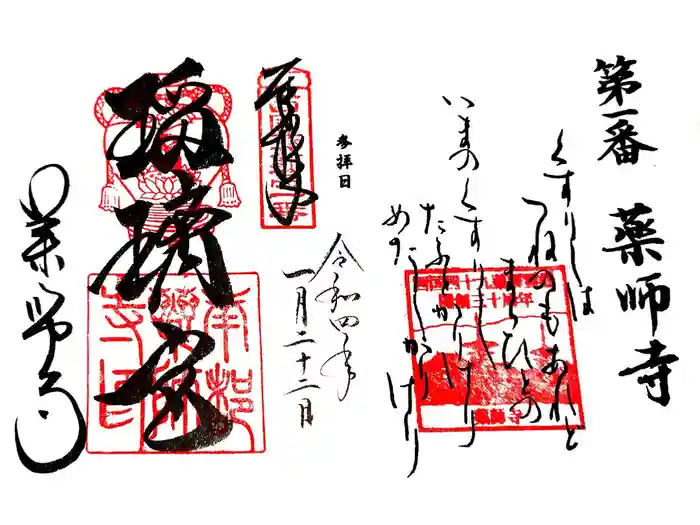 第一番 薬師寺
くすりしは
つねのもあれど
まらひとの
いまのくすりし
たふとかりけり
めだしかりけり
参拝日
令和四年
一月二十二日
奉拝
瑠璃宮
薬師寺